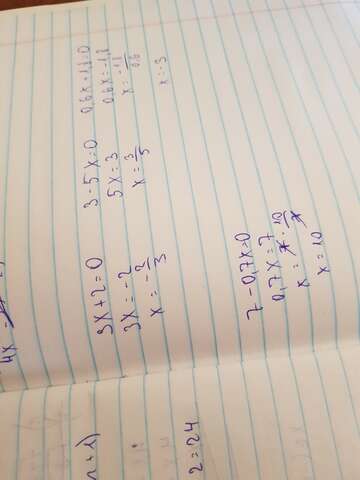 4x =
3x + 2 = 0
3x = -2
x = -2/3
3 - 5x = 0
5x = 3
x = 3/5
0,6x + 1,8 = 0
0,6x = -1,8
x = -1,8/0,6
x = -3
7 - 0,7x = 0
0,7x = 7
x = 7 · 10/7
x = 10
2 = 24